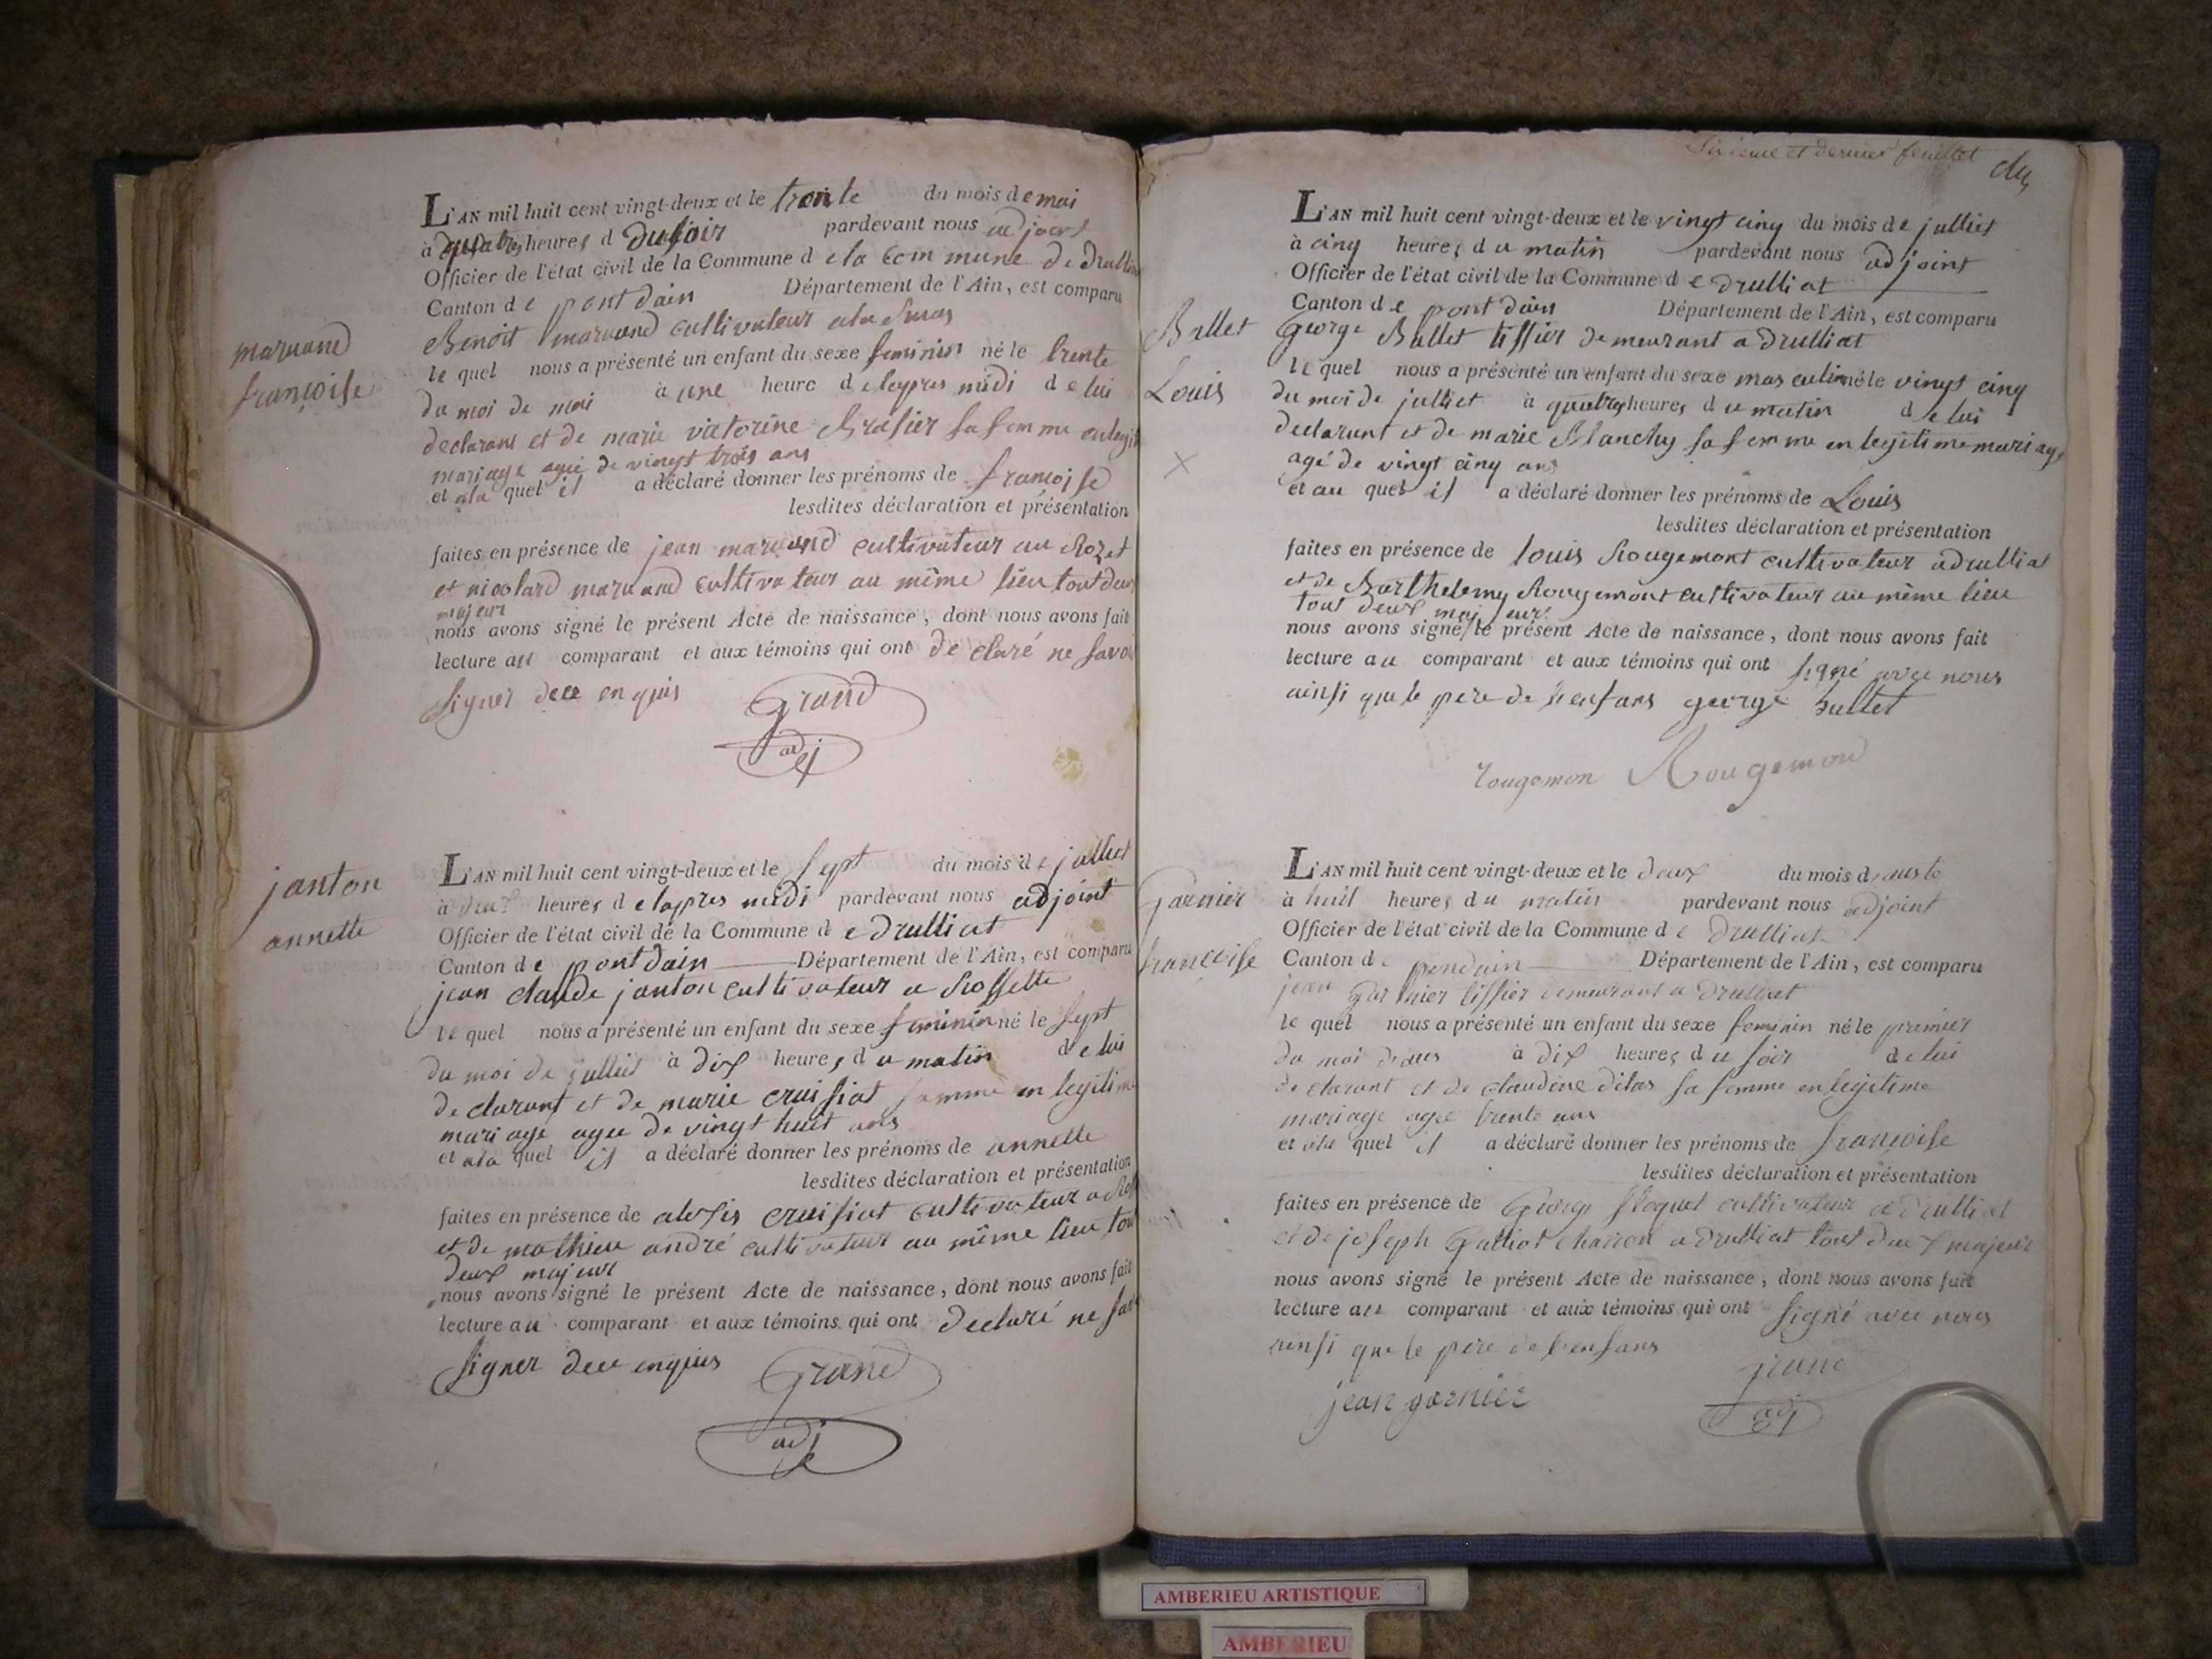 maruand
françoise
L'AN mil huit cent vingt-deux et le trente du mois de mai
à quatres heures d du soir pardevant nous adjoint
Officier de l'état civil de la Commune d e la commune de Drullia
Canton de pontdain Département de l'Ain, est comparu
Benoit maruand cultivateur ala
le quel nous a présenté un enfant du sexe feminin né le trente
du moi de mai à une heure de lapres midi de lui
declarant et de marie victorine Brasier sa femme en legit
mariage agée de vingt trois ans
et ala quel il a déclaré donner les prénoms de françoise
lesdites déclaration et présentation
faites en présence de jean maruand cultivateur au Rozet
et maruand cultivateur au même lieu tout deux
majeur
nous avons signé le présent Acte de naissance, dont nous avons fait
lecture au comparant et aux témoins qui ont declaré ne savoi
signer de ce enquis Grand
adj
janton
annette
L'AN mil huit cent vingt-deux et le sept du mois de julliet
à deux heures de lapres midi pardevant nous adjoint
Officier de l'état civil de la Commune de Drulliat
Canton de pontdain Département de l'Ain, est comparu
jean claude janton cultivateur a Rossette
le quel nous a présenté un enfant du sexe feminin né le sept
du moi de julliet à dix heures du matin de lui
declarant et de marie cruisiat femme en legitime
mariage agee de vingt huit ans
et ala quel il a déclaré donner les prénoms de annette
lesdites déclaration et présentation
faites en présence de alexis cruisiat cultivateur a Ross
et de mathieu andré cultivateur au même lieu tou
deux majeur
nous avons signé le présent Acte de naissance, dont nous avons fait
lecture au comparant et aux témoins qui ont declaré ne sav
signer de ce enquis Grand
adj
Sixieme et dernier feuillet
Ballet
Louis
L'AN mil huit cent vingt-deux et le vingt cinq du mois de julliet
à cinq heures du matin pardevant nous adjoint
Officier de l'état civil de la Commune de Drulliat
Canton de pontdain Département de l'Ain, est comparu
George Ballet tissier demeurant a Drulliat
le quel nous a présenté un enfant du sexe masculin né le vingt cinq
du moi de julliet à quatres heures du matin de lui
declarant et de marie Blanchy sa femme en legitime mariage
agé de vingt cinq ans
et au quel il a déclaré donner les prénoms de Louis
lesdites déclaration et présentation
faites en présence de louis Rougemont cultivateur a drulliat
et de Barthelemy Rougemont cultivateur au même lieu
tout deux majeur
nous avons signé le présent Acte de naissance, dont nous avons fait
lecture au comparant et aux témoins qui ont signé avec nous
ainsi que le pere de l'enfans george ballet
rougemon Rougemon
Garnier
françoise
L'AN mil huit cent vingt-deux et le deux du mois d'auste
à huit heures du matin pardevant nous adjoint
Officier de l'état civil de la Commune de Drulliat
Canton de pondain Département de l'Ain, est comparu
jean Garnier tissier demeurant a Drulliat
le quel nous a présenté un enfant du sexe feminin né le premier
du moi à dix heures du soir de lui
declarant et de claudine sa femme en legitime
mariage agee trente ans
et ala quel il a déclaré donner les prénoms de françoise
lesdites déclaration et présentation
faites en présence de George cultivateur a drulliat
et de joseph Galliot charron a Drulliat tout deux majeur
nous avons signé le présent Acte de naissance, dont nous avons fait
lecture au comparant et aux témoins qui ont signé avec nous
ainsi que le pere de l'enfans
jean garnier Grand
adj
AMBERIEU ARTISTIQUE
AMBERIEU